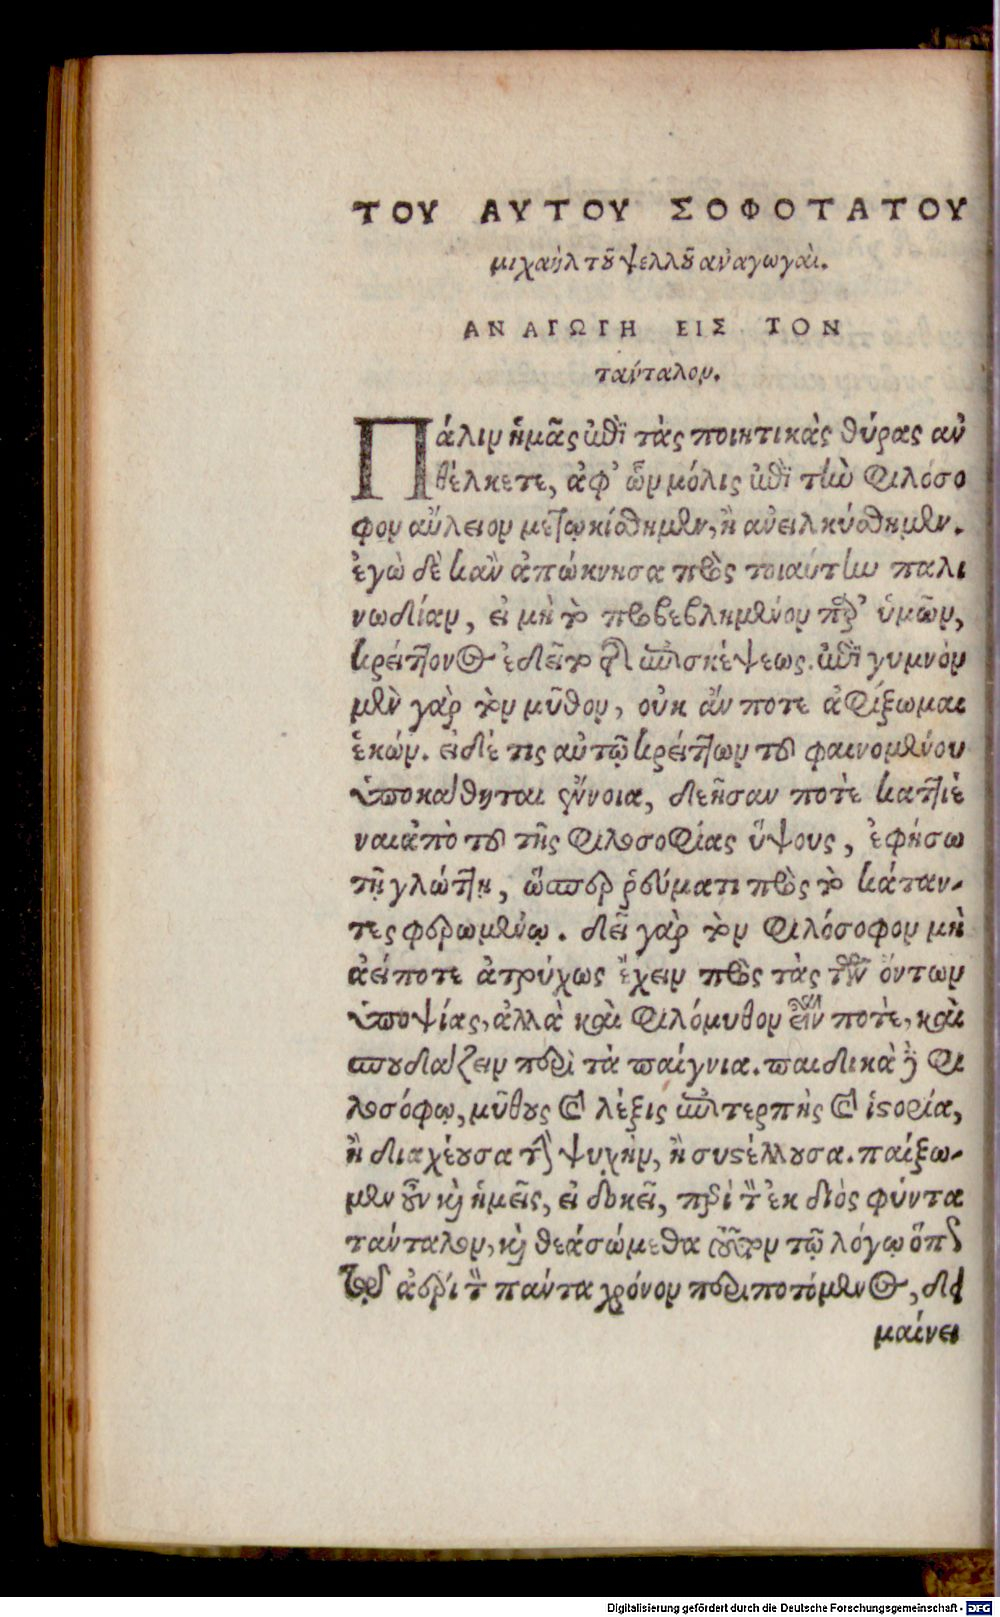 ΤΟΥ ΑΥΤΟΥ ΣΟΦΟΤΑΤΟΥ
μιχαὴλ τοῦ ψελλοῦ ἀναγωγαὶ.
ΑΝΑΓΩΓΗ ΕΙΣ ΤΟΝ
τάνταλον.
Πάλιν ἡμᾶς ἐπὶ τὰς ποιητικὰς θύρας ἀν
θέλκετε, ἀφ' ὧν μόλις ἐπὶ τὴν φιλόσο
φον αὔλειον μετῳκίσθημεν, ἢ ἀνειλκύσθημεν.
ἐγὼ δὲ κἂν ἀπώκνησα πρὸς τοιαύτην παλι
νωδίαν, εἰ μὴ τὸ προβεβλημένον παρ' ὑμῶν,
κρείττονος ἐδεῖτο τῆς ἐπισκέψεως. ἐπὶ γυμνὸν
μὲν γὰρ τὸν μῦθον, οὐκ ἄν ποτε ἀφίξωμαι
ἑκών. εἰ δέ τις αὐτῷ κρείττων τοῦ φαινομένου
ὑποκάθηται ἔννοια, δεῆσαν ποτὲ κατιέ
ναι ἀπὸ τοῦ τῆς φιλοσοφίας ὕψους, ἐφήσω
τῇ γλώττῃ, ὥσπερ ῥεύματι πρὸς τὸ κάταν-
τες φερωμένῳ. δεῖ γὰρ τὸν φιλόσοφον μὴ
ἀείποτε ἀτρύχως ἔχειν πρὸς τὰς τῶν ὄντων
ὑποψίας, ἀλλὰ καὶ φιλόμυθον εἶναι ποτὲ, καὶ
σπουδάζειν περὶ τὰ παίγνια. παιδικὰ δὲ φι
λοσόφῳ, μῦθους καὶ λέξις ἐπιτερπὴς καὶ ἱστορία,
ἢ διαχέουσα τὴν ψυχὴν, ἢ συστέλλουσα. παίξω-
μεν οὖν καὶ ἡμεῖς, εἰ δοκεῖ, περὶ τὸν ἐκ διὸς φύντα
τάνταλον, καὶ θεάσώμεθα τοῦτον τῷ λόγῳ ὅπερ
ὑπὲρ ἀέρι τὸν πάντα χρόνον περιποτόμενος, δει
μαίνει
Digitalisierung gefördert durch die Deutsche Forschungsgemeinschaft - DFG